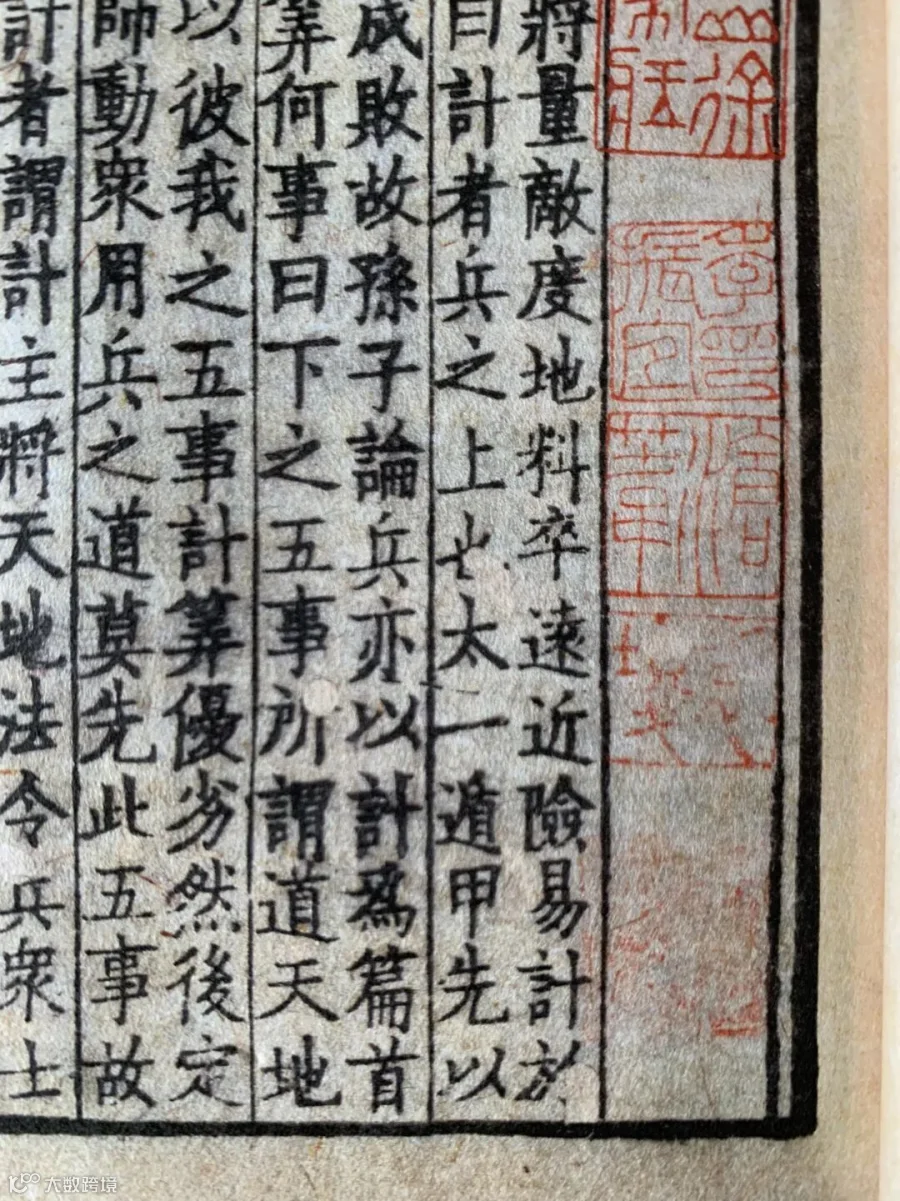 將量敵度地料卒遠近險易計於
曰計者兵之上也太一遁甲先以
成敗故孫子論兵亦以計為篇首
筭何事曰下之五事所謂道天地
以彼我之五事計筭優劣然後定
師動衆用兵之道莫先此五事故
計者謂計主將天地法令兵衆士
大数跨境